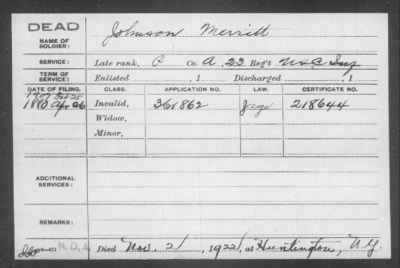 DEAD
NAME OF SOLDIER: Johnson Merritt
SERVICE: Late rank, P Co. A, 22 Reg't U.S.C. Inf
TERM OF SERVICE: Enlisted , 1 Discharged , 1
DATE OF FILING. CLASS. APPLICATION NO. LAW. CERTIFICATE NO.
1907
1880 Apr 26 Invalid, 361862 218644
Widow,
Minor,
ADDITIONAL SERVICES:
REMARKS:
N.D.A. Died Nov. 21, 1922, at Huntington, N.Y.